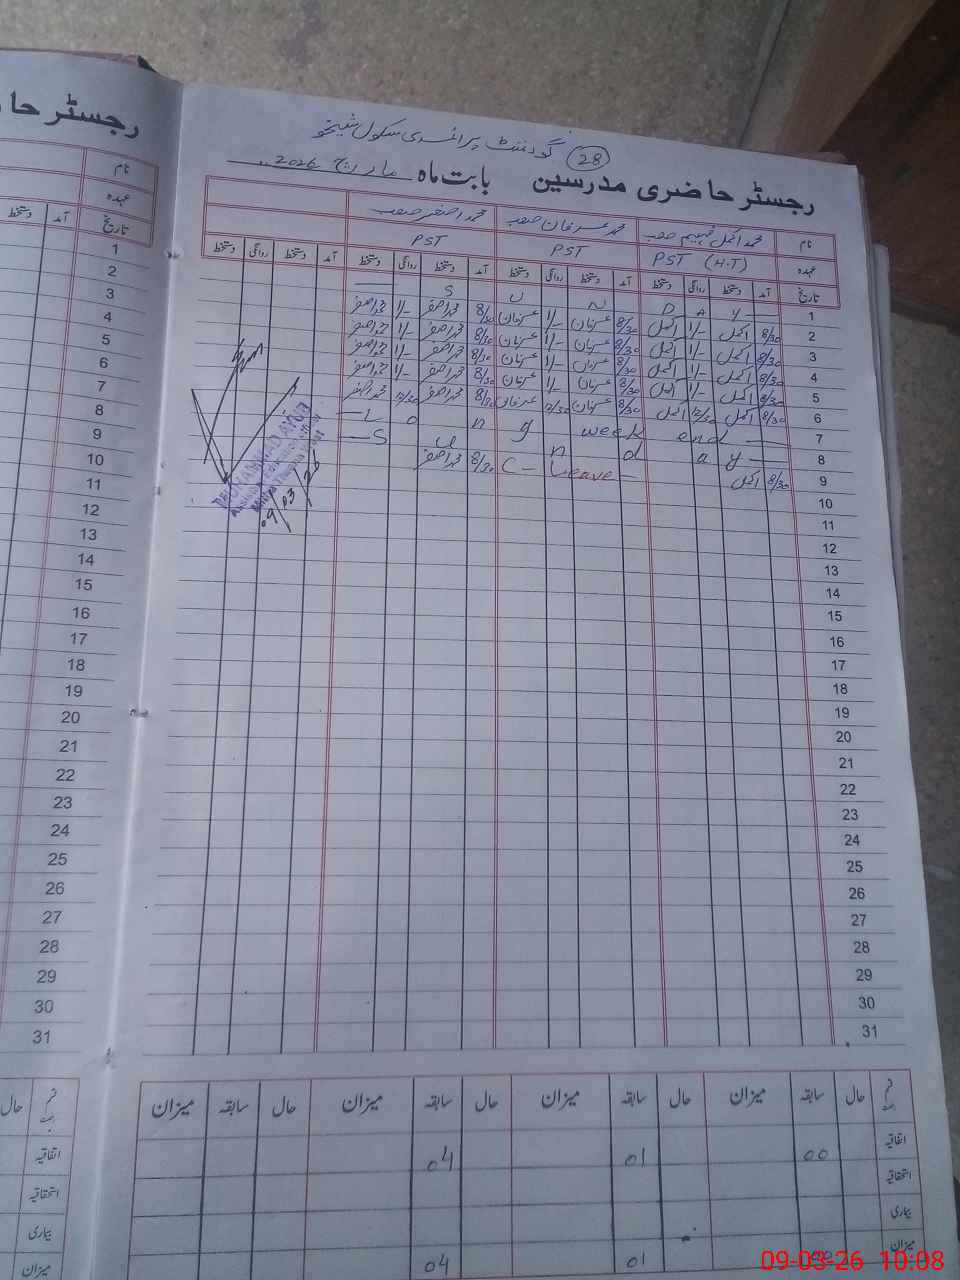 رجسٹر حا
نام
عہدہ
تاریخ
آمد
دستخط
1
2
3
4
5
6
7
8
9
10
11
12
13
14
15
16
17
18
19
20
21
22
23
24
25
26
27
28
29
30
31
حال
اتفاقیہ
استحقاقیہ
بیماری
میزان
28 گورنمنٹ پرائمری سکول
رجسٹر حاضری مدرسین بابت ماہ مارچ 2026
نام محمد اکمل فہیم صاحب محمد عرفان صاحب محمد اصغر صاحب
عہدہ PST (H.T) PST PST
تاریخ آمد دستخط روانگی دستخط آمد دستخط روانگی دستخط آمد دستخط روانگی دستخط آمد دستخط روانگی دستخط
1 S U N D A Y
2 8/30 اکمل 1/- اکمل 8/30 عرفان 1/- عرفان 8/30 محمد اصغر 1/- محمد اصغر
3 8/30 اکمل 1/- اکمل 8/30 عرفان 1/- عرفان 8/30 محمد اصغر 1/- محمد اصغر
4 8/30 اکمل 1/- اکمل 8/30 عرفان 1/- عرفان 8/30 محمد اصغر 1/- محمد اصغر
5 8/30 اکمل 1/- اکمل 8/30 عرفان 1/- عرفان 8/30 محمد اصغر 1/- محمد اصغر
6 8/30 اکمل 12/30 اکمل 8/30 عرفان 12/30 عرفان 8/30 محمد اصغر 12/30 محمد اصغر
7 L o n g week end
8 S u n d a y
9 8/30 اکمل C- Leave 8/30 محمد اصغر
10
11
12
13
14
15
16
17
18
19
20
21
22
23
24
25
26
27
28
29
30
31
MUHAMMAD
09/03/26
حال سابقہ میزان حال سابقہ میزان حال سابقہ میزان حال سابقہ میزان
اتفاقیہ 00 01 04
استحقاقیہ
بیماری
میزان 00 01 04
09-03-26 10:08